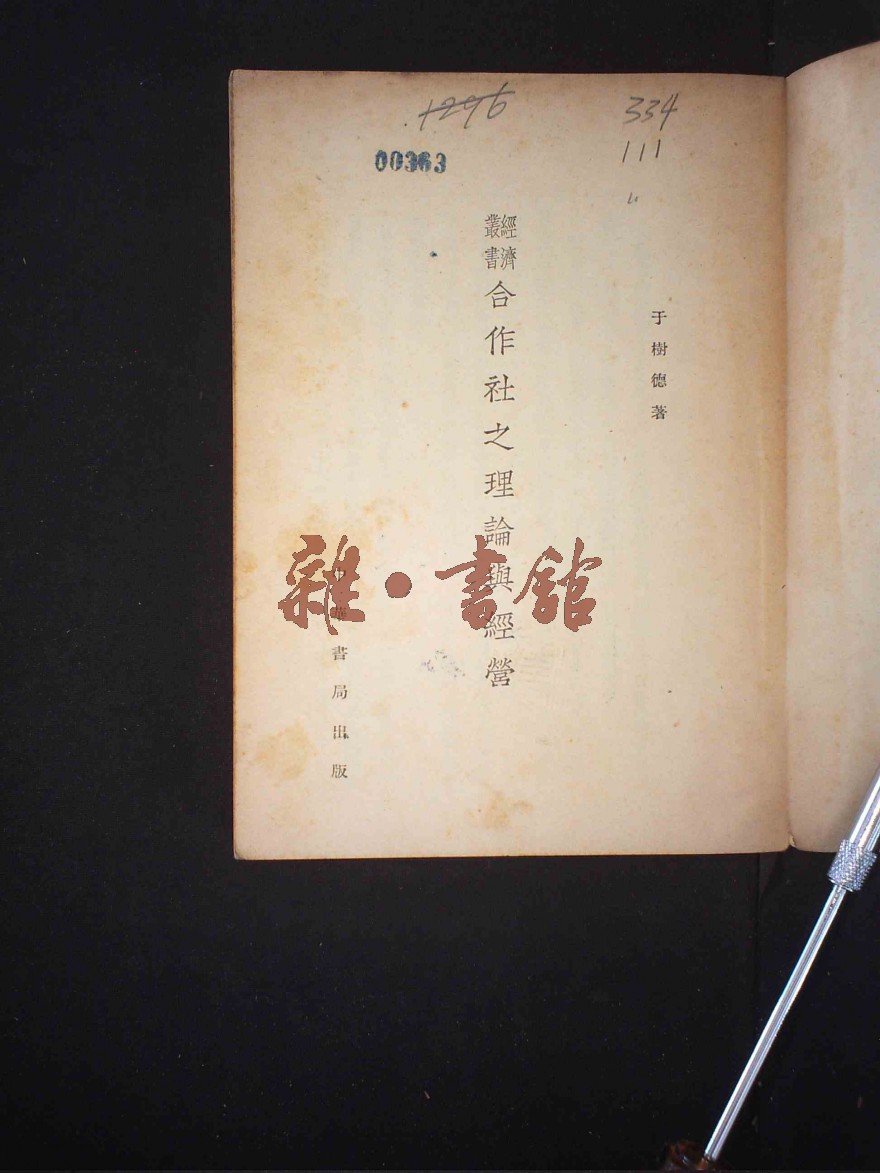 1296
334
111
00363
于樹德著
經濟叢書
合作社之理論與經營
中華書局出版
雜·書館